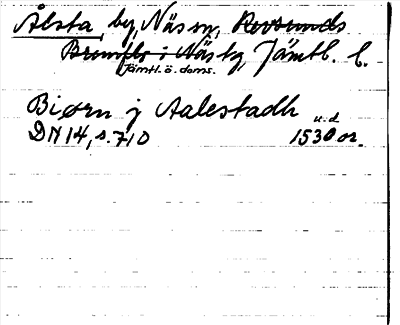 Ålsta, by, Näs sn, Revsunds
Brunflo i Näs tg, Jämtl. l.
Jämtl. ö. doms.
Biørn j Aalestadh u.d
DN 14, s. 710 1530 or.